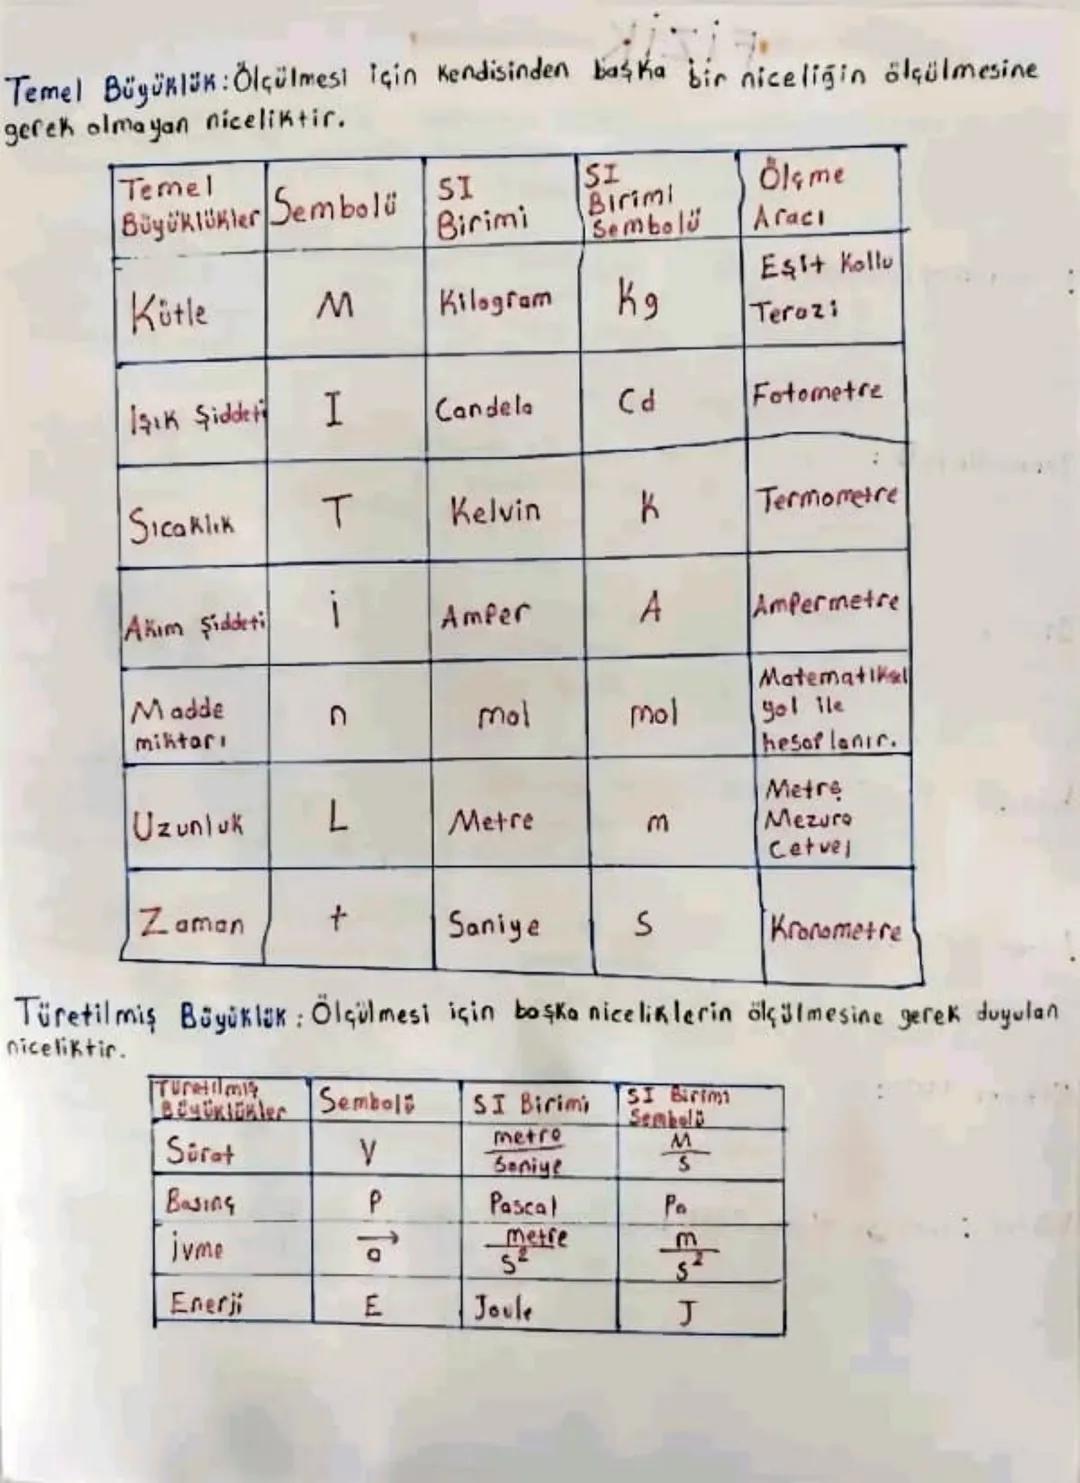 FİZİK
Temel Büyüklük: Ölçülmesi için kendisinden başka bir niceliğin ölçülmesine
gerek olmayan niceliktir.
Temel Büyüklükler Sembolü SI Birimi SI Birimi Sembolü Ölçme Aracı
Kütle M Kilogram Kg Eşit Kollu Terazi
Işık Şiddeti I Candela Cd Fotometre
Sıcaklık T Kelvin K Termometre
Akım Şiddeti i Amper A Ampermetre
Madde miktarı n mol mol Matematiksel yol ile hesaplanır.
Uzunluk L Metre m Metre Mezura Cetvel
Zaman t Saniye S Kronometre
Türetilmiş Büyüklük: Ölçülmesi için başka niceliklerin ölçülmesine gerek duyulan
niceliktir.
Türetilmiş Büyüklükler Sembolü SI Birimi SI Birimi Sembolü
Sürat V metre/Saniye M/S
Basınç P Pascal Pa
İvme a⃗ metre/S² m/S²
Enerji E Joule J